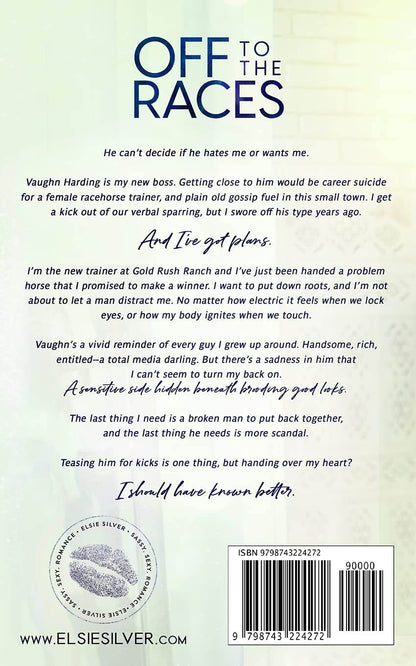 OFF TO
THE
RACES
He can't decide if he hates me or wants me.
Vaughn Harding is my new boss. Getting close to him would be career suicide
for a female racehorse trainer, and plain old gossip fuel in this small town. I get
a kick out of our verbal sparring, but I swore off his type years ago.
And I've got plans.
I'm the new trainer at Gold Rush Ranch and I've just been handed a problem
horse that I promised to make a winner. I want to put down roots, and I'm not
about to let a man distract me. No matter how electric it feels when we lock
eyes, or how my body ignites when we touch.
Vaughn's a vivid reminder of every guy I grew up around. Handsome, rich,
entitled—a total media darling. But there's a sadness in him that
I can't seem to turn my back on.
A sensitive side hidden beneath brooding good looks.
The last thing I need is a broken man to put back together,
and the last thing he needs is more scandal.
Teasing him for kicks is one thing, but handing over my heart?
I should have known better.
ELSIE SILVER • SASSY. SEXY. ROMANCE • ELSIE SILVER • SASSY. SEXY. ROMANCE •
WWW.ELSIESILVER.COM
ISBN 9798743224272
90000
9 798743 224272